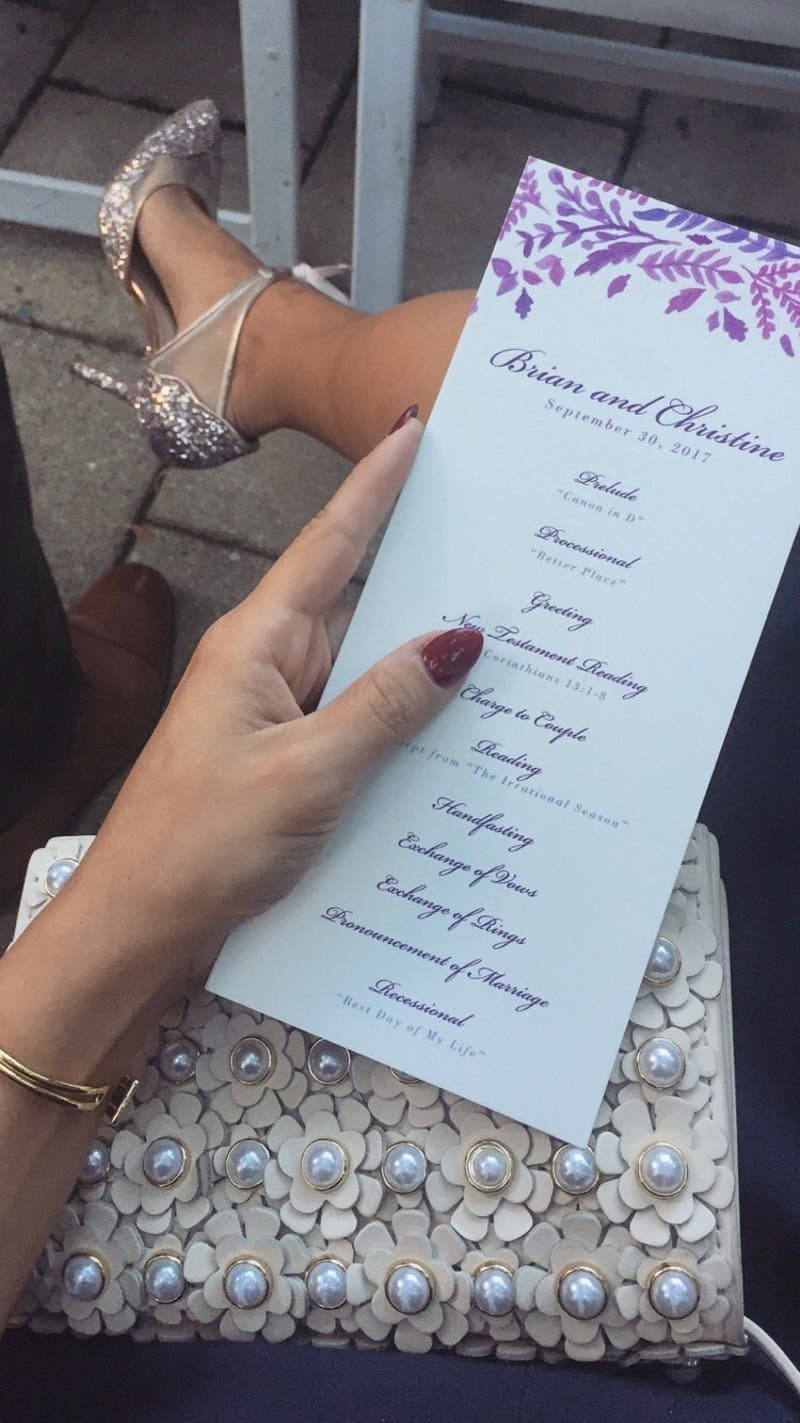 Brian and Christine
September 30, 2017
Prelude
"Canon in D"
Processional
"Better Place"
Greeting
New Testament Reading
Corinthians 13:1-8
Charge to Couple
Reading
from "The Irrational Season"
Handfasting
Exchange of Vows
Exchange of Rings
Pronouncement of Marriage
Recessional
"Best Day of My Life"